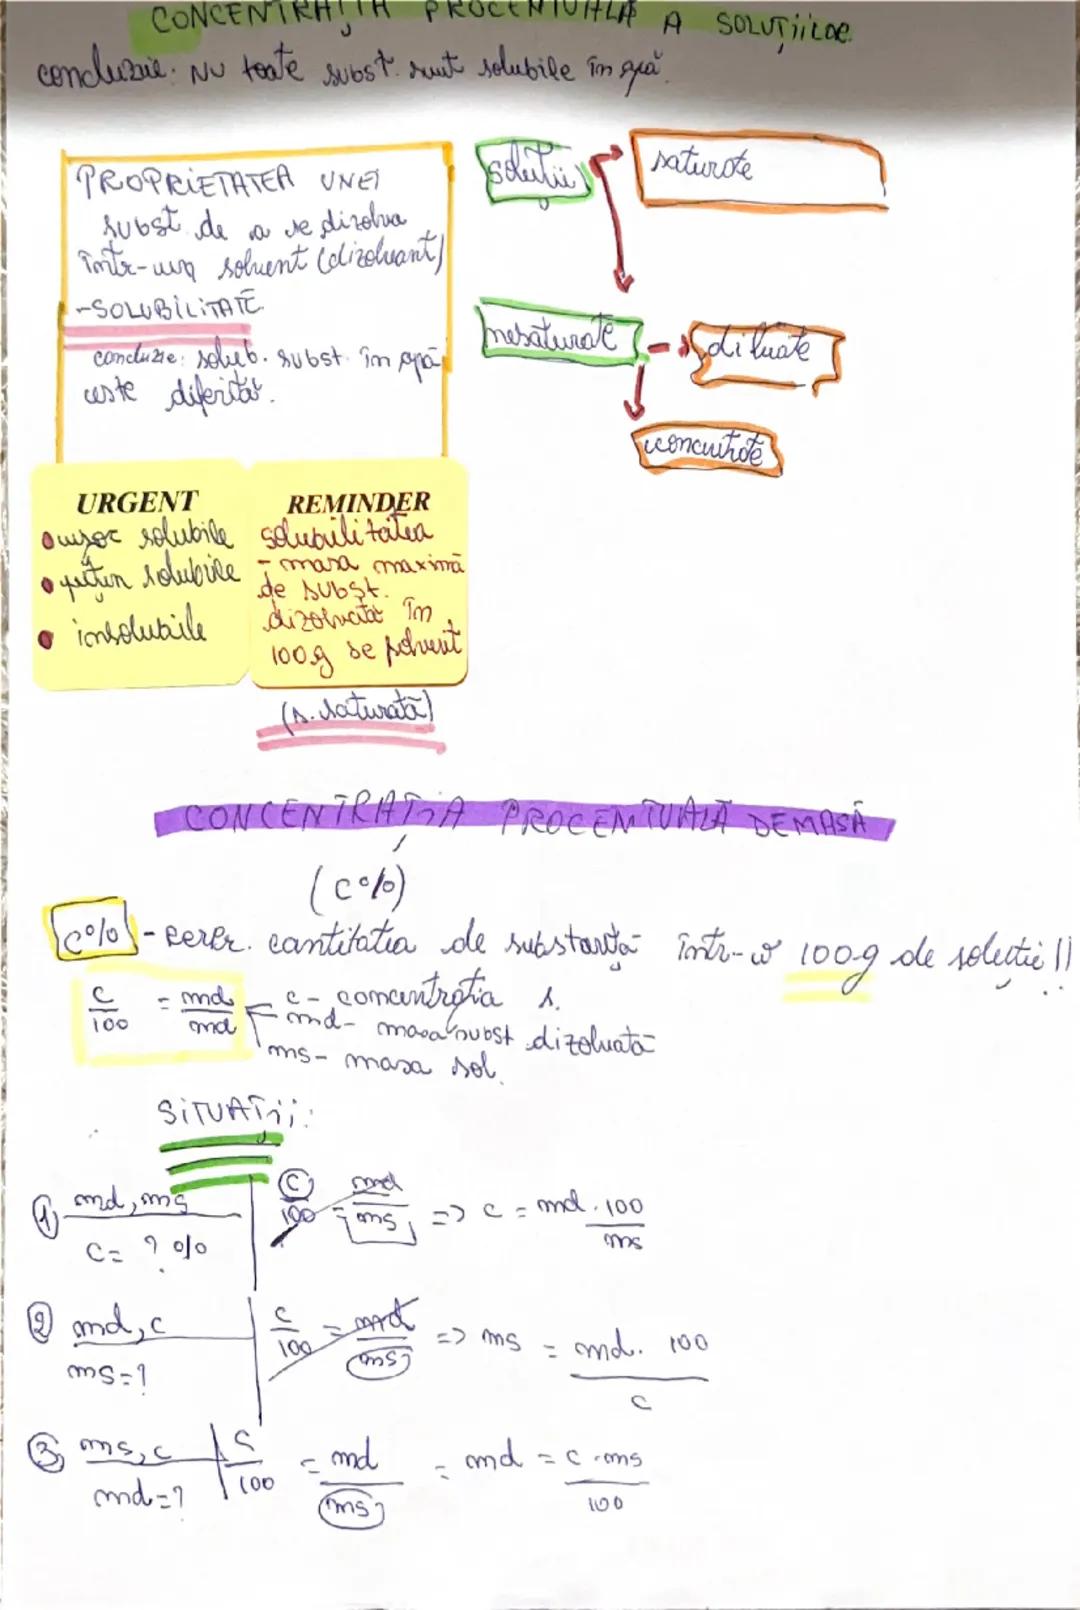 CONCENTRAȚIA PROCENTUALĂ A SOLUȚIILOR
concluzie: NU toate subst. sunt solubile în apă.
PROPRIETATEA UNEI
subst. de a se dizolva
într-un solvent (dizolvant)
-SOLUBILITATE.
concluzie: solub. subst. în apă
este diferită.
soluții
saturate
nesaturate
diluate
concentrate
URGENT
• ușor solubile
• puțin solubile
• insolubile
REMINDER
solubilitatea
- masa maximă
de subst.
dizolvată în
100g se solvent
(s. saturată)
CONCENTRAȚIA PROCENTUALĂ DE MASĂ
(c%)
c% - reprez. cantitatea de substanță într-o 100g de soluție!!
c/100 = md/md
c - concentrația s.
md - masa subst dizolvată
ms - masa sol.
SITUAȚII:
① md, ms
c = ? %
c/100 = md/ms => c = md · 100/ms
② md, c
ms = ?
c/100 = md/ms => ms = md · 100/c
③ ms, c
md = ?
c/100 = md/ms = md = c · ms/100